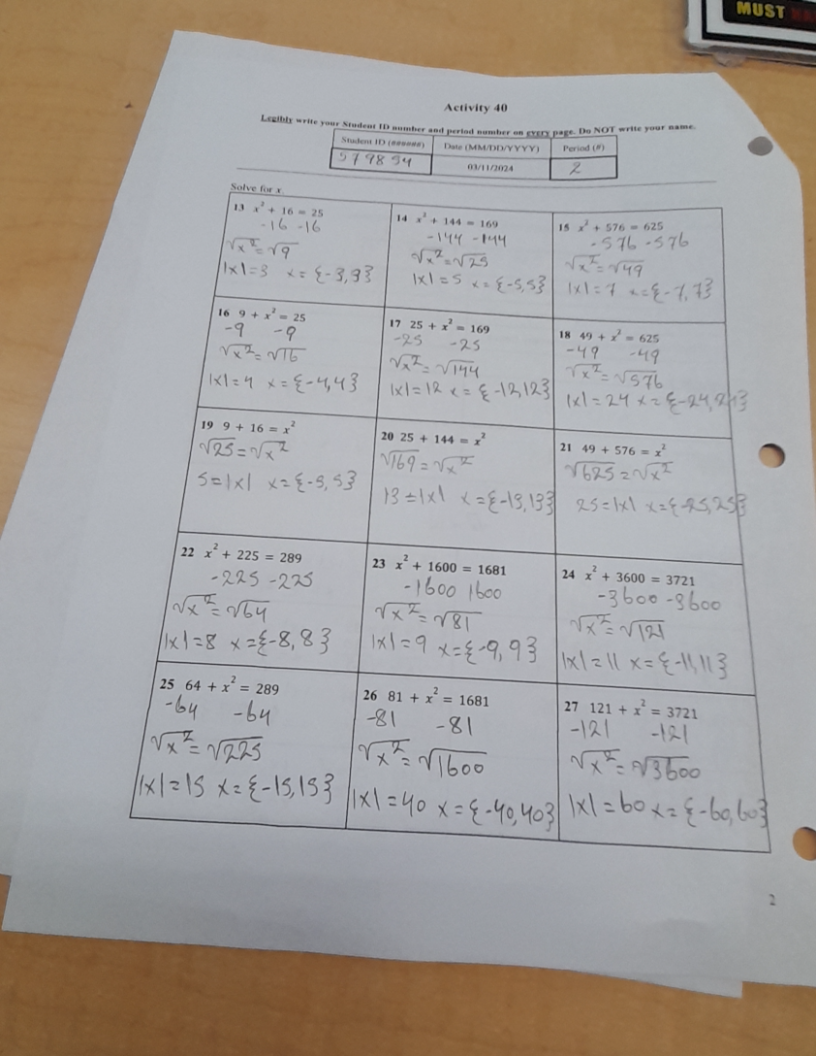 MUST
Activity 40
Legibly write your Student ID number and period number on every page. Do NOT write your name.
Student ID (######) Date (MM/DD/YYYY) Period (#)
03/11/2024 2
Solve for x.
13 x² + 16 = 25
-16 -16
√x² = √9
|x| = 3 x = {-3, 3}
14 x² + 144 = 169
-144 -144
√x² = √25
|x| = 5 x = {-5, 5}
15 x² + 576 = 625
-576 -576
√x² = √49
|x| = 7 x = {-7, 7}
16 9 + x² = 25
-9 -9
√x² = √16
|x| = 4 x = {-4, 4}
17 25 + x² = 169
-25 -25
√x² = √144
|x| = 12 x = {-12, 12}
18 49 + x² = 625
-49 -49
√x² = √576
|x| = 24 x = {-24, 24}
19 9 + 16 = x²
√25 = √x²
5 = |x| x = {-5, 5}
20 25 + 144 = x²
√169 = √x²
13 = |x| x = {-13, 13}
21 49 + 576 = x²
√625 = √x²
25 = |x| x = {-25, 25}
22 x² + 225 = 289
-225 -225
√x² = √64
|x| = 8 x = {-8, 8}
23 x² + 1600 = 1681
-1600 1600
√x² = √81
|x| = 9 x = {-9, 9}
24 x² + 3600 = 3721
-3600 -3600
√x² = √121
|x| = 11 x = {-11, 11}
25 64 + x² = 289
-64 -64
√x² = √225
|x| = 15 x = {-15, 15}
26 81 + x² = 1681
-81 -81
√x² = √1600
|x| = 40 x = {-40, 40}
27 121 + x² = 3721
-121 -121
√x² = √3600
|x| = 60 x = {-60, 60}
2